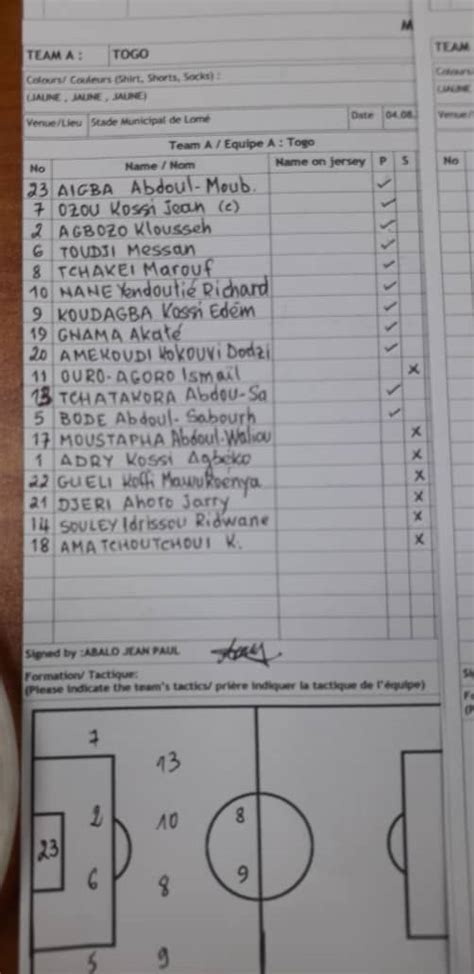 M
TEAM A : TOGO
Colours/ Couleurs (Shirt, Shorts, Socks) :
(JAUNE , JAUNE , JAUNE)
Venue/Lieu Stade Municipal de Lomé Date 04.08.
Team A / Equipe A : Togo
No Name / Nom Name on jersey P S
23 AIGBA Abdoul-Moub. ✓
7 OZOU Kossi Jean (c) ✓
2 AGBOZO Klousseh ✓
6 TOUDJI Messan ✓
8 TCHAKEI Marouf ✓
10 NANE Yendoutié Richard ✓
9 KOUDAGBA Kossi Edém ✓
19 GNAMA Akaté ✓
20 AMEKOUDI Kokouvi Dodzi ✓
11 OURO-AGORO Ismaïl x
13 TCHATAKORA Abdou-Sa ✓
5 BODE Abdoul-Sabourh ✓
17 MOUSTAPHA Abdoul-Waliou x
1 ADRY Kossi Agbéko x
22 GUELI Koffi x
21 DJERI Ahoro Jarry x
14 SOULEY Idrissou Ridwane x
18 AMATCHOUTCHOUI K. x
Signed by :ABALO JEAN PAUL
Formation/ Tactique:
(Please indicate the team's tactics/ prière indiquer la tactique de l'équipe)
7
13
2 10 8
23
6 8 9
5 9
TEAM
Colours
(JAUNE
Venue/
No